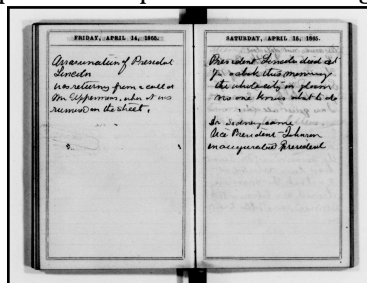 FRIDAY, APRIL 14, 1865.
Assassination of President
Lincoln
was returning from a call at
Mr. when it was
rumored in the street.
SATURDAY, APRIL 15, 1865.
President Lincoln died at
o'clock this morning
the whole city in gloom
no one knows what to do
Dr Sidney came
Vice President Johnson
inaugurated President